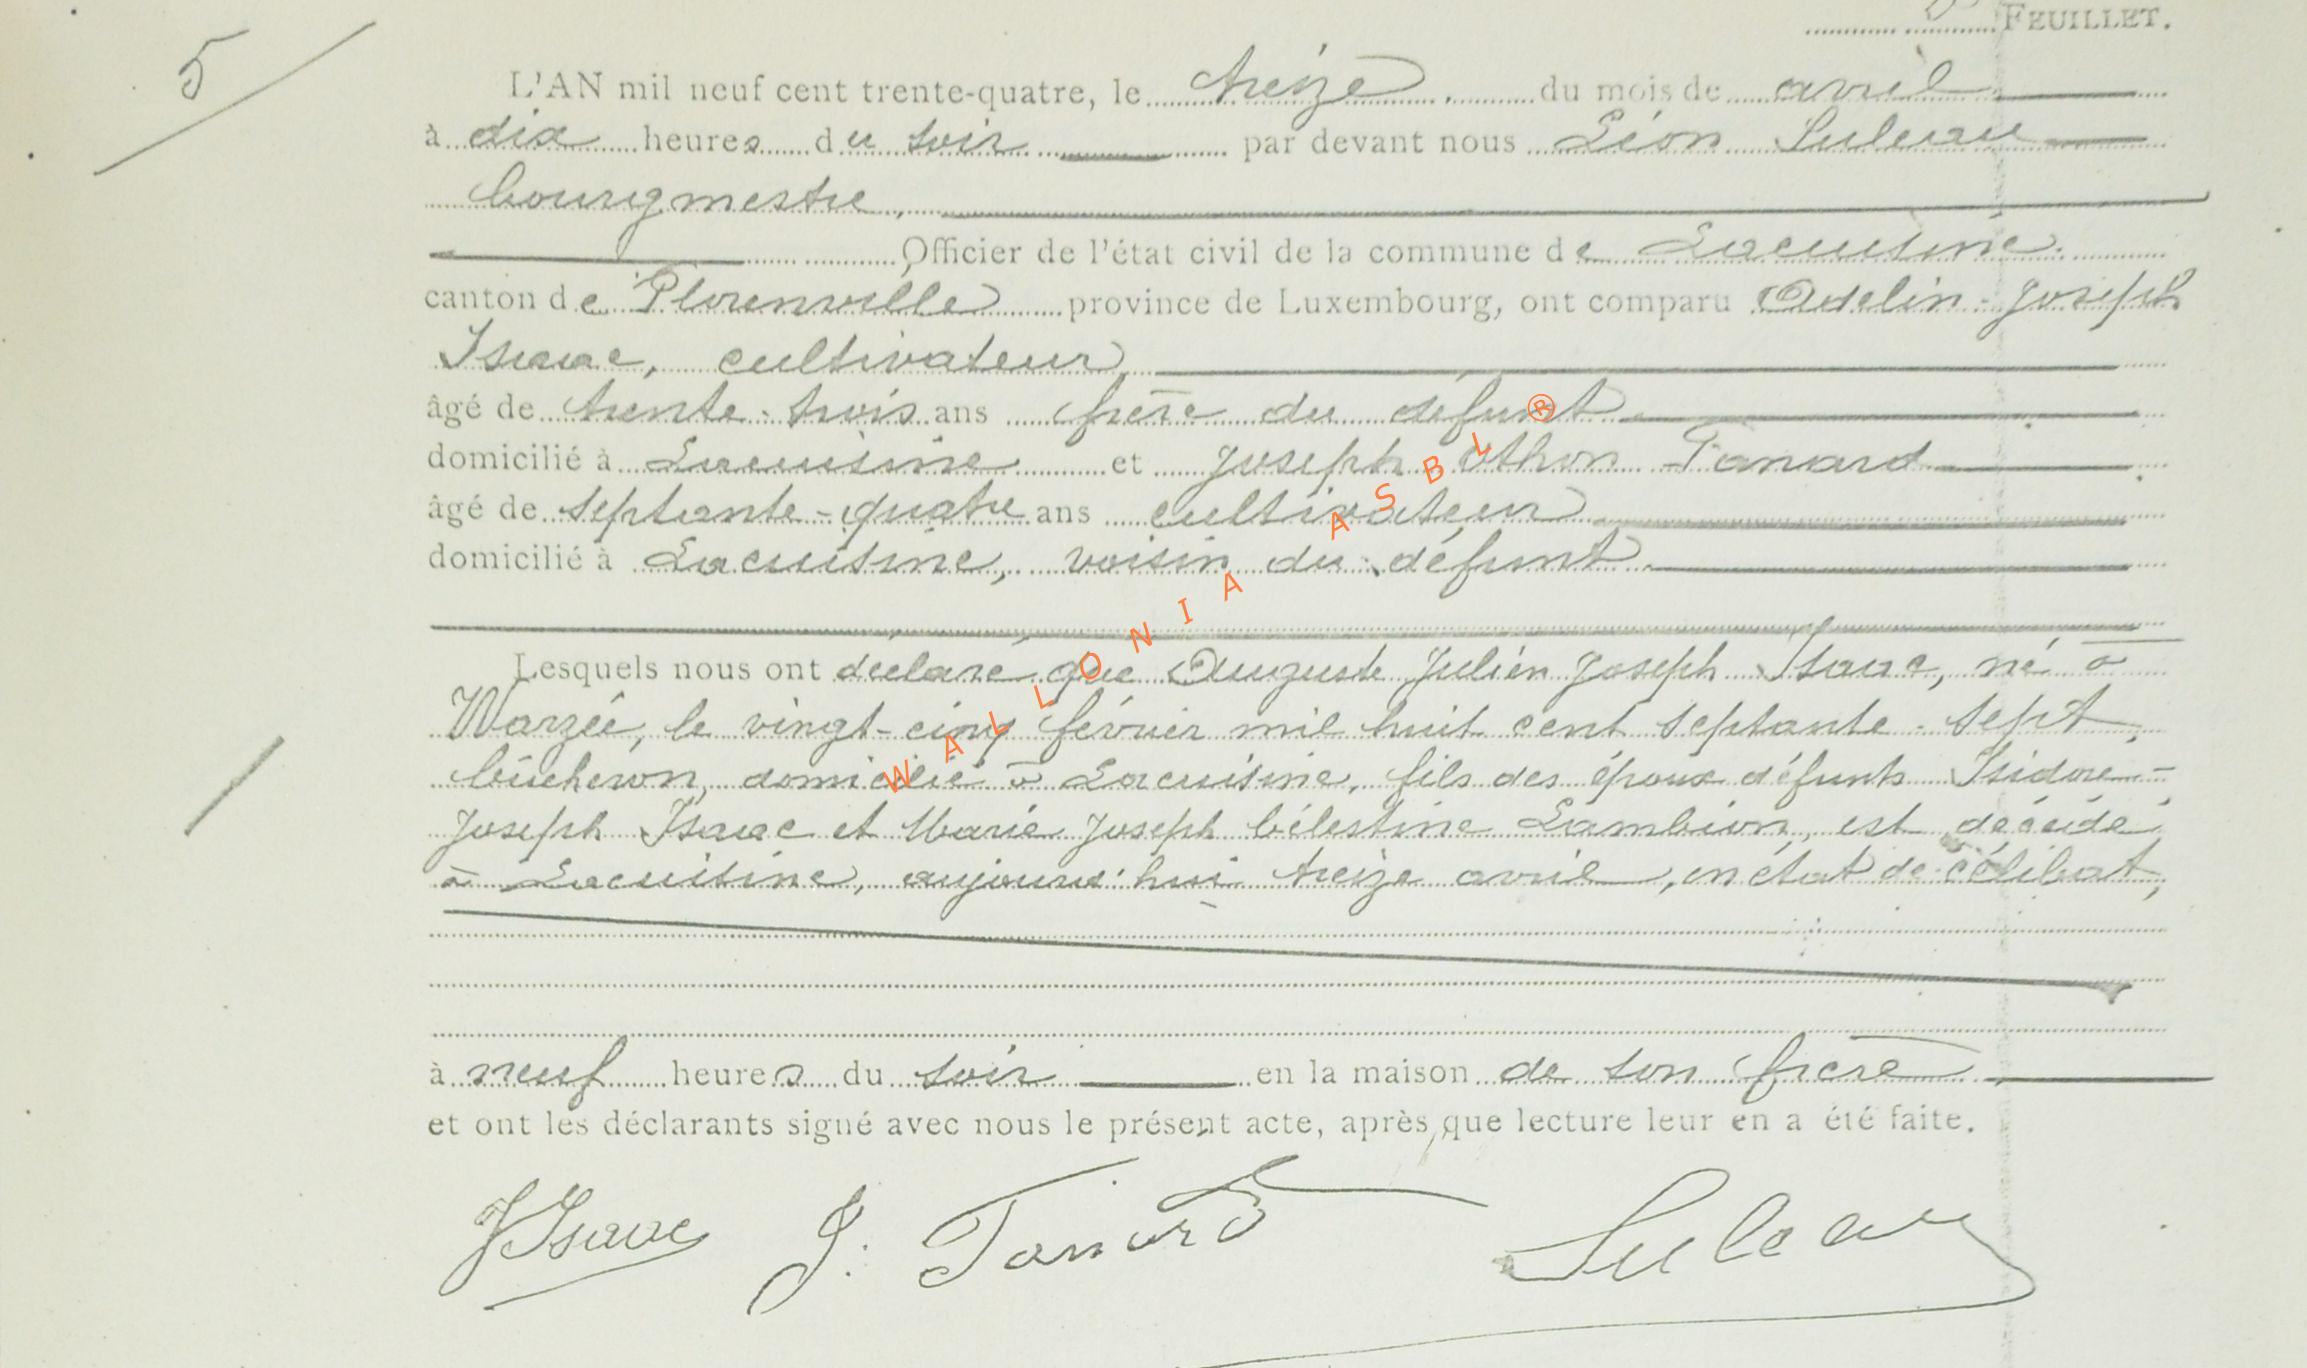 FEUILLET.
5
L'AN mil neuf cent trente-quatre, le treize du mois de avril
à dix heures du soir par devant nous Léon Suleau
bourgmestre,
Officier de l'état civil de la commune de Lacuisine.
canton de Florenville province de Luxembourg, ont comparu Adelin-Joseph
Isaac, cultivateur
âgé de trente-trois ans frère du défunt
domicilié à Lacuisine et Joseph Othon Tanard
âgé de septante-quatre ans cultivateur
domicilié à Lacuisine, voisin du défunt
Lesquels nous ont déclaré que Auguste Julien Joseph Isaac, né à
Warzée, le vingt-cinq février mil huit cent septante-sept,
bûcheron, domicilié à Lacuisine, fils des époux défunts Isidore-
Joseph Isaac et Marie Joseph Célestine Lambion, est décédé
à Lacuisine, aujourd'hui treize avril, en état de célibat,
à neuf heures du soir en la maison de son frère
et ont les déclarants signé avec nous le présent acte, après que lecture leur en a été faite.
JIsaac J. Tanard Suleau
WALLONIA ASBL ®